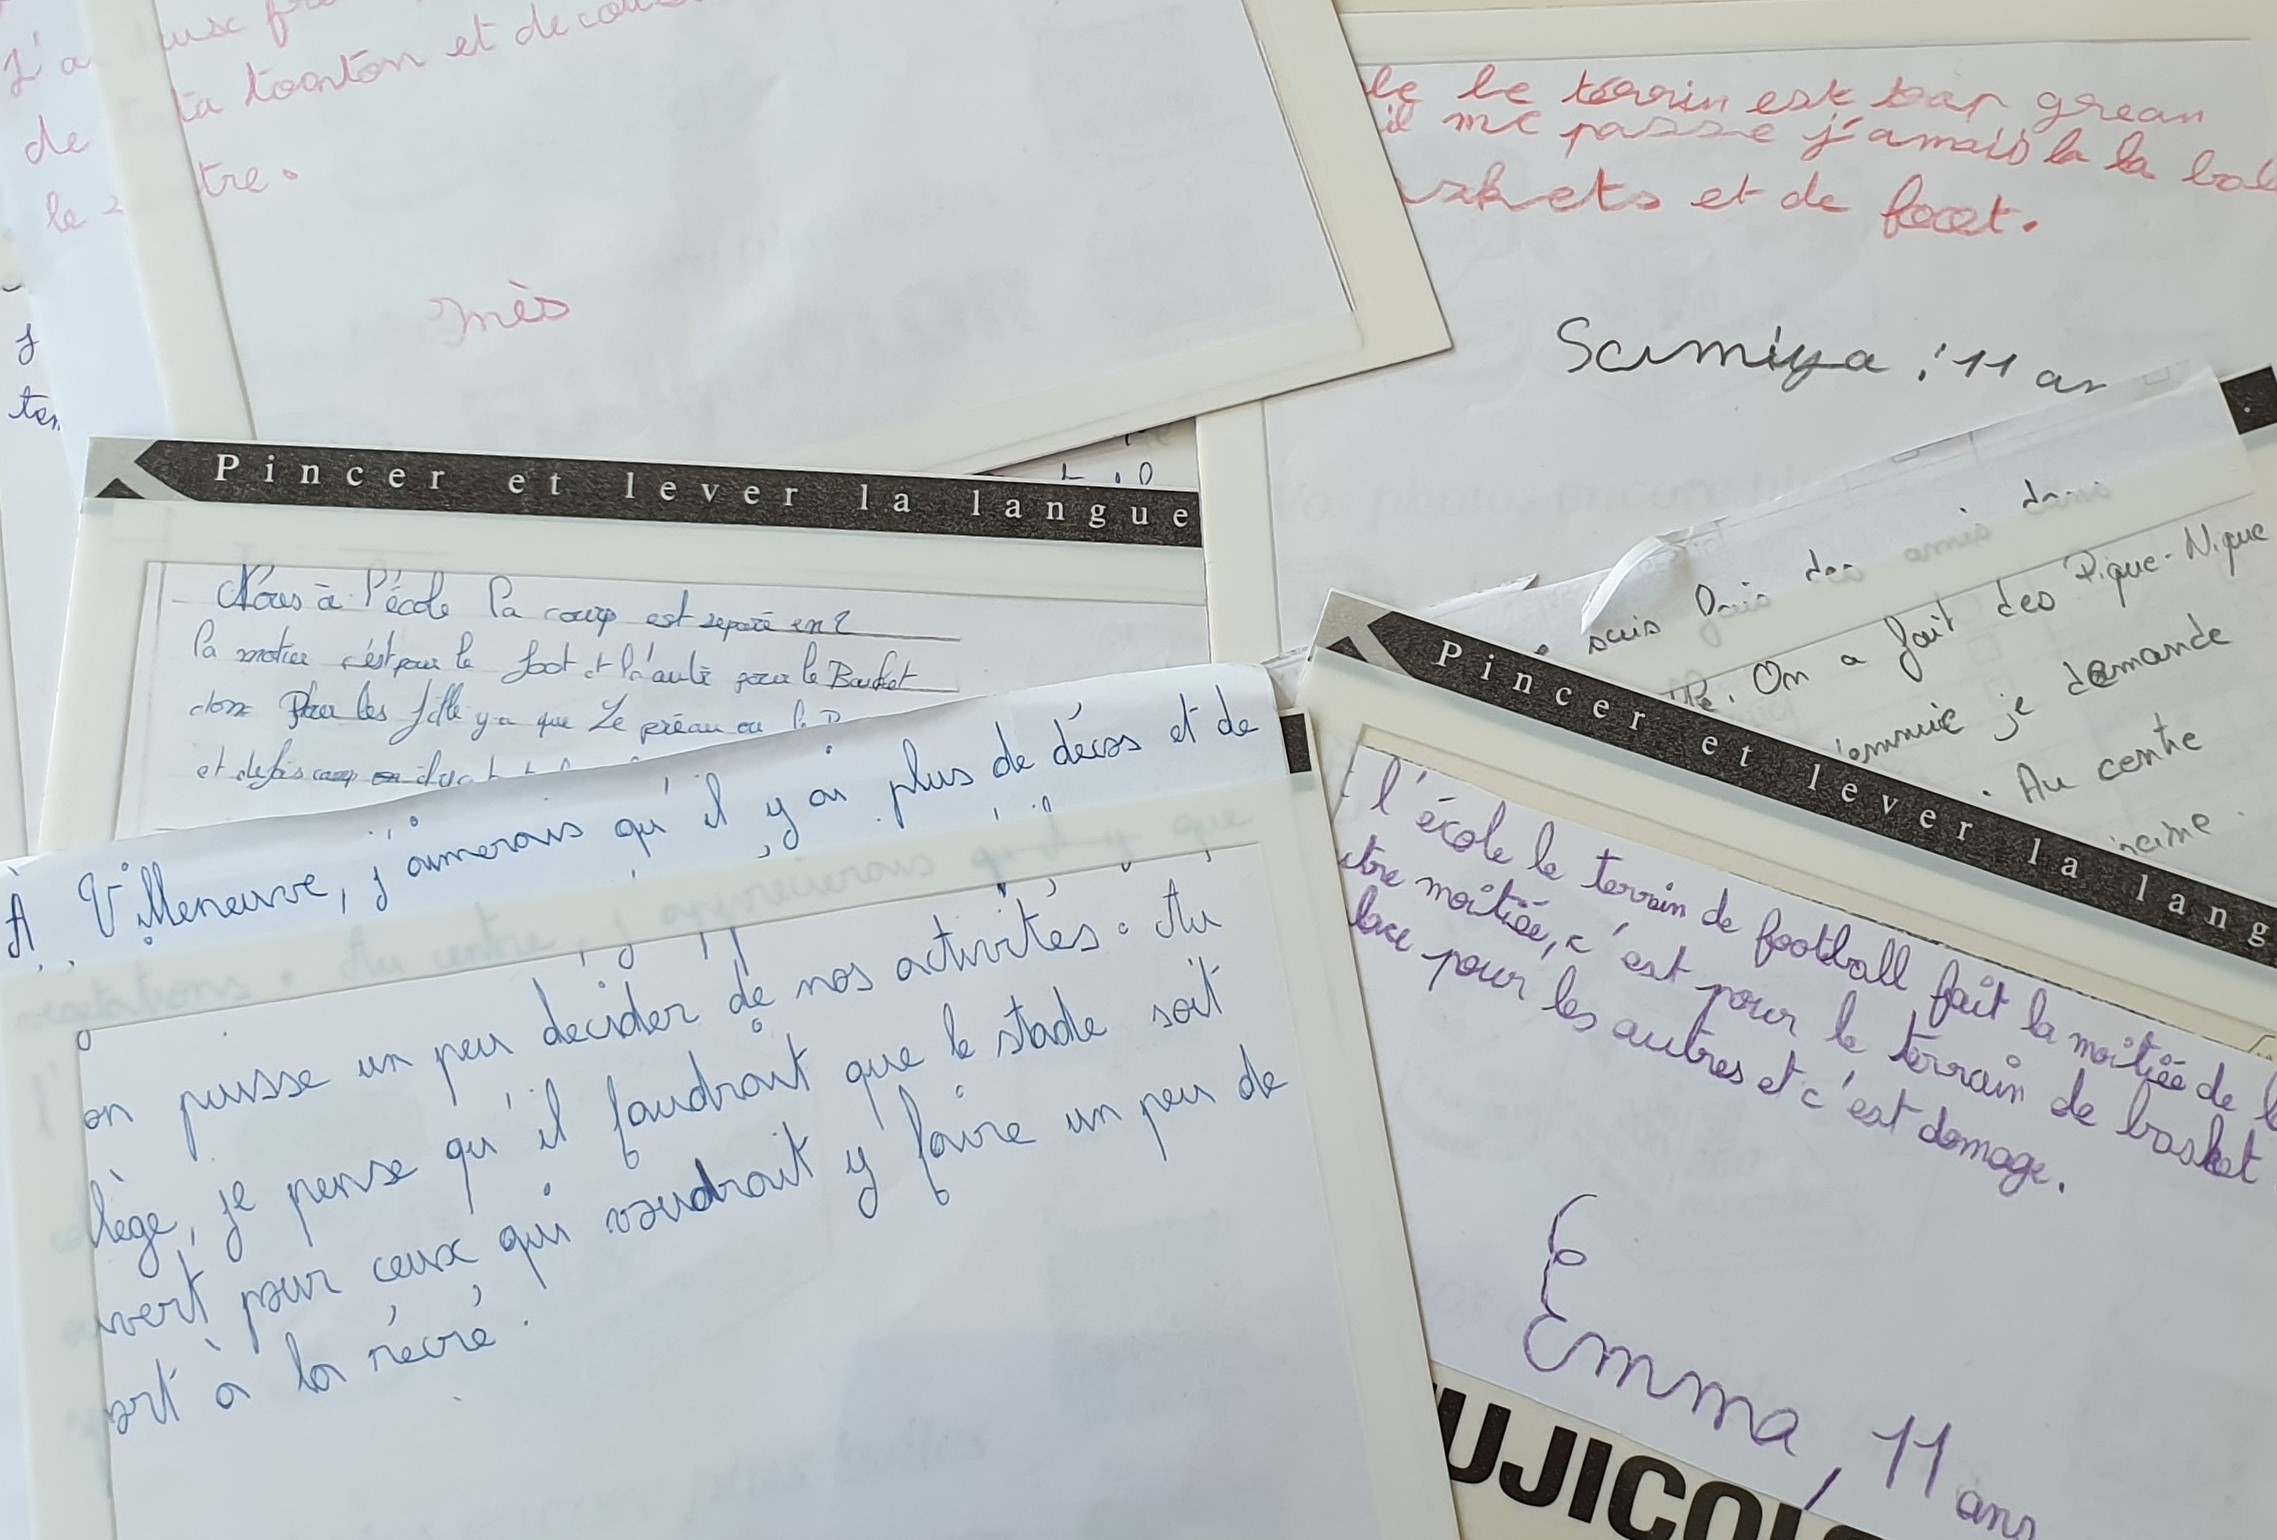 J'a
de
le
ta tonton et de
tre.
Inès
le terrain est trop grean
il me passe j'amais la la bal
skets et de foot.
Samiya : 11 an
j
Pincer et lever la langue
Nous à l'école la cour est separé en 2
la motier c'est pour le foot et l'autr pour le Basket
donc Pour les fille y a que Le préau ou
et
suis des amis dans
On a fait des Pique-Nique
je demande
Au centre
Pincer et lever la lang
À Villeneuve, j'aimerais qu'il y ai plus de décos et de
on puisse un peu decider de nos activités. Au
llège, je pense qu'il faudrait que le stade soit
uvert pour ceux qui voudrait y faire un peu de
ort à la récré.
l'école le terrain de football fait la moitiée de l
utre moitiée, c'est pour le terrain de basket
lace pour les autres et c'est domage.
Emma, 11 ans
UJICOL